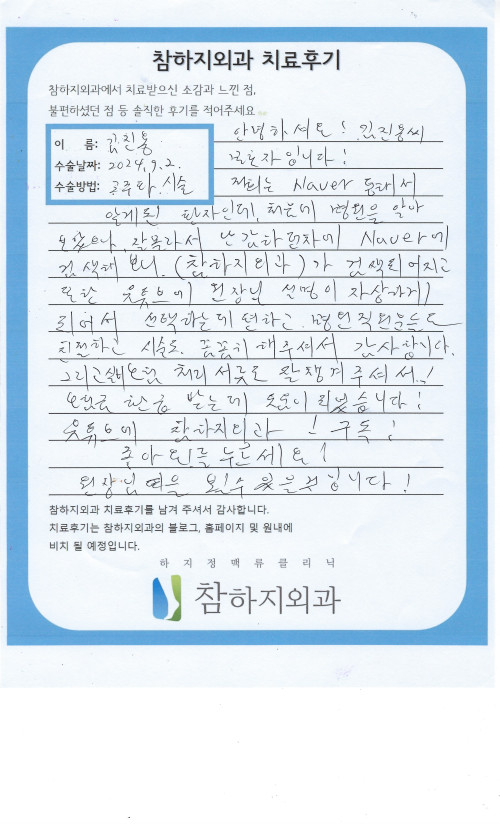 참하지외과 치료후기
참하지외과에서 치료받으신 소감과 느낀 점,
불편하셨던 점 등 솔직한 후기를 적어주세요
안녕하셔요! 김진통씨
이 름: 김진통
보호자입니다!
수술날짜: 2024. 9. 2.
수술방법: 고주파 시술
저희는 Naver 통해서
알게된 환자인데, 처음에 병원을 알아
보았으나, 잘몰라서 난감하던차에 Naver에
검색해 보니. (참하지외과)가 검색되어지고
또한 유튜브에 원장님 설명이 자상하게
되어서 선택하는데 편하고. 병원직원분들도
친절하고 시술도. 꼼꼼히 해주셔서 감사합니다.
그리고 실비보험 처리 서류도 잘 챙겨주셔서!
보험금 환급 받는데 도움이 되었습니다!
유튜브에 참하지외과 ! 구독!
좋아요를 누르세요!
원장님 을 보실수 있을것입니다!
참하지외과 치료후기를 남겨 주셔서 감사합니다.
치료후기는 참하지외과의 블로그, 홈페이지 및 원내에
비치 될 예정입니다.
하지정맥류클리닉
참하지외과